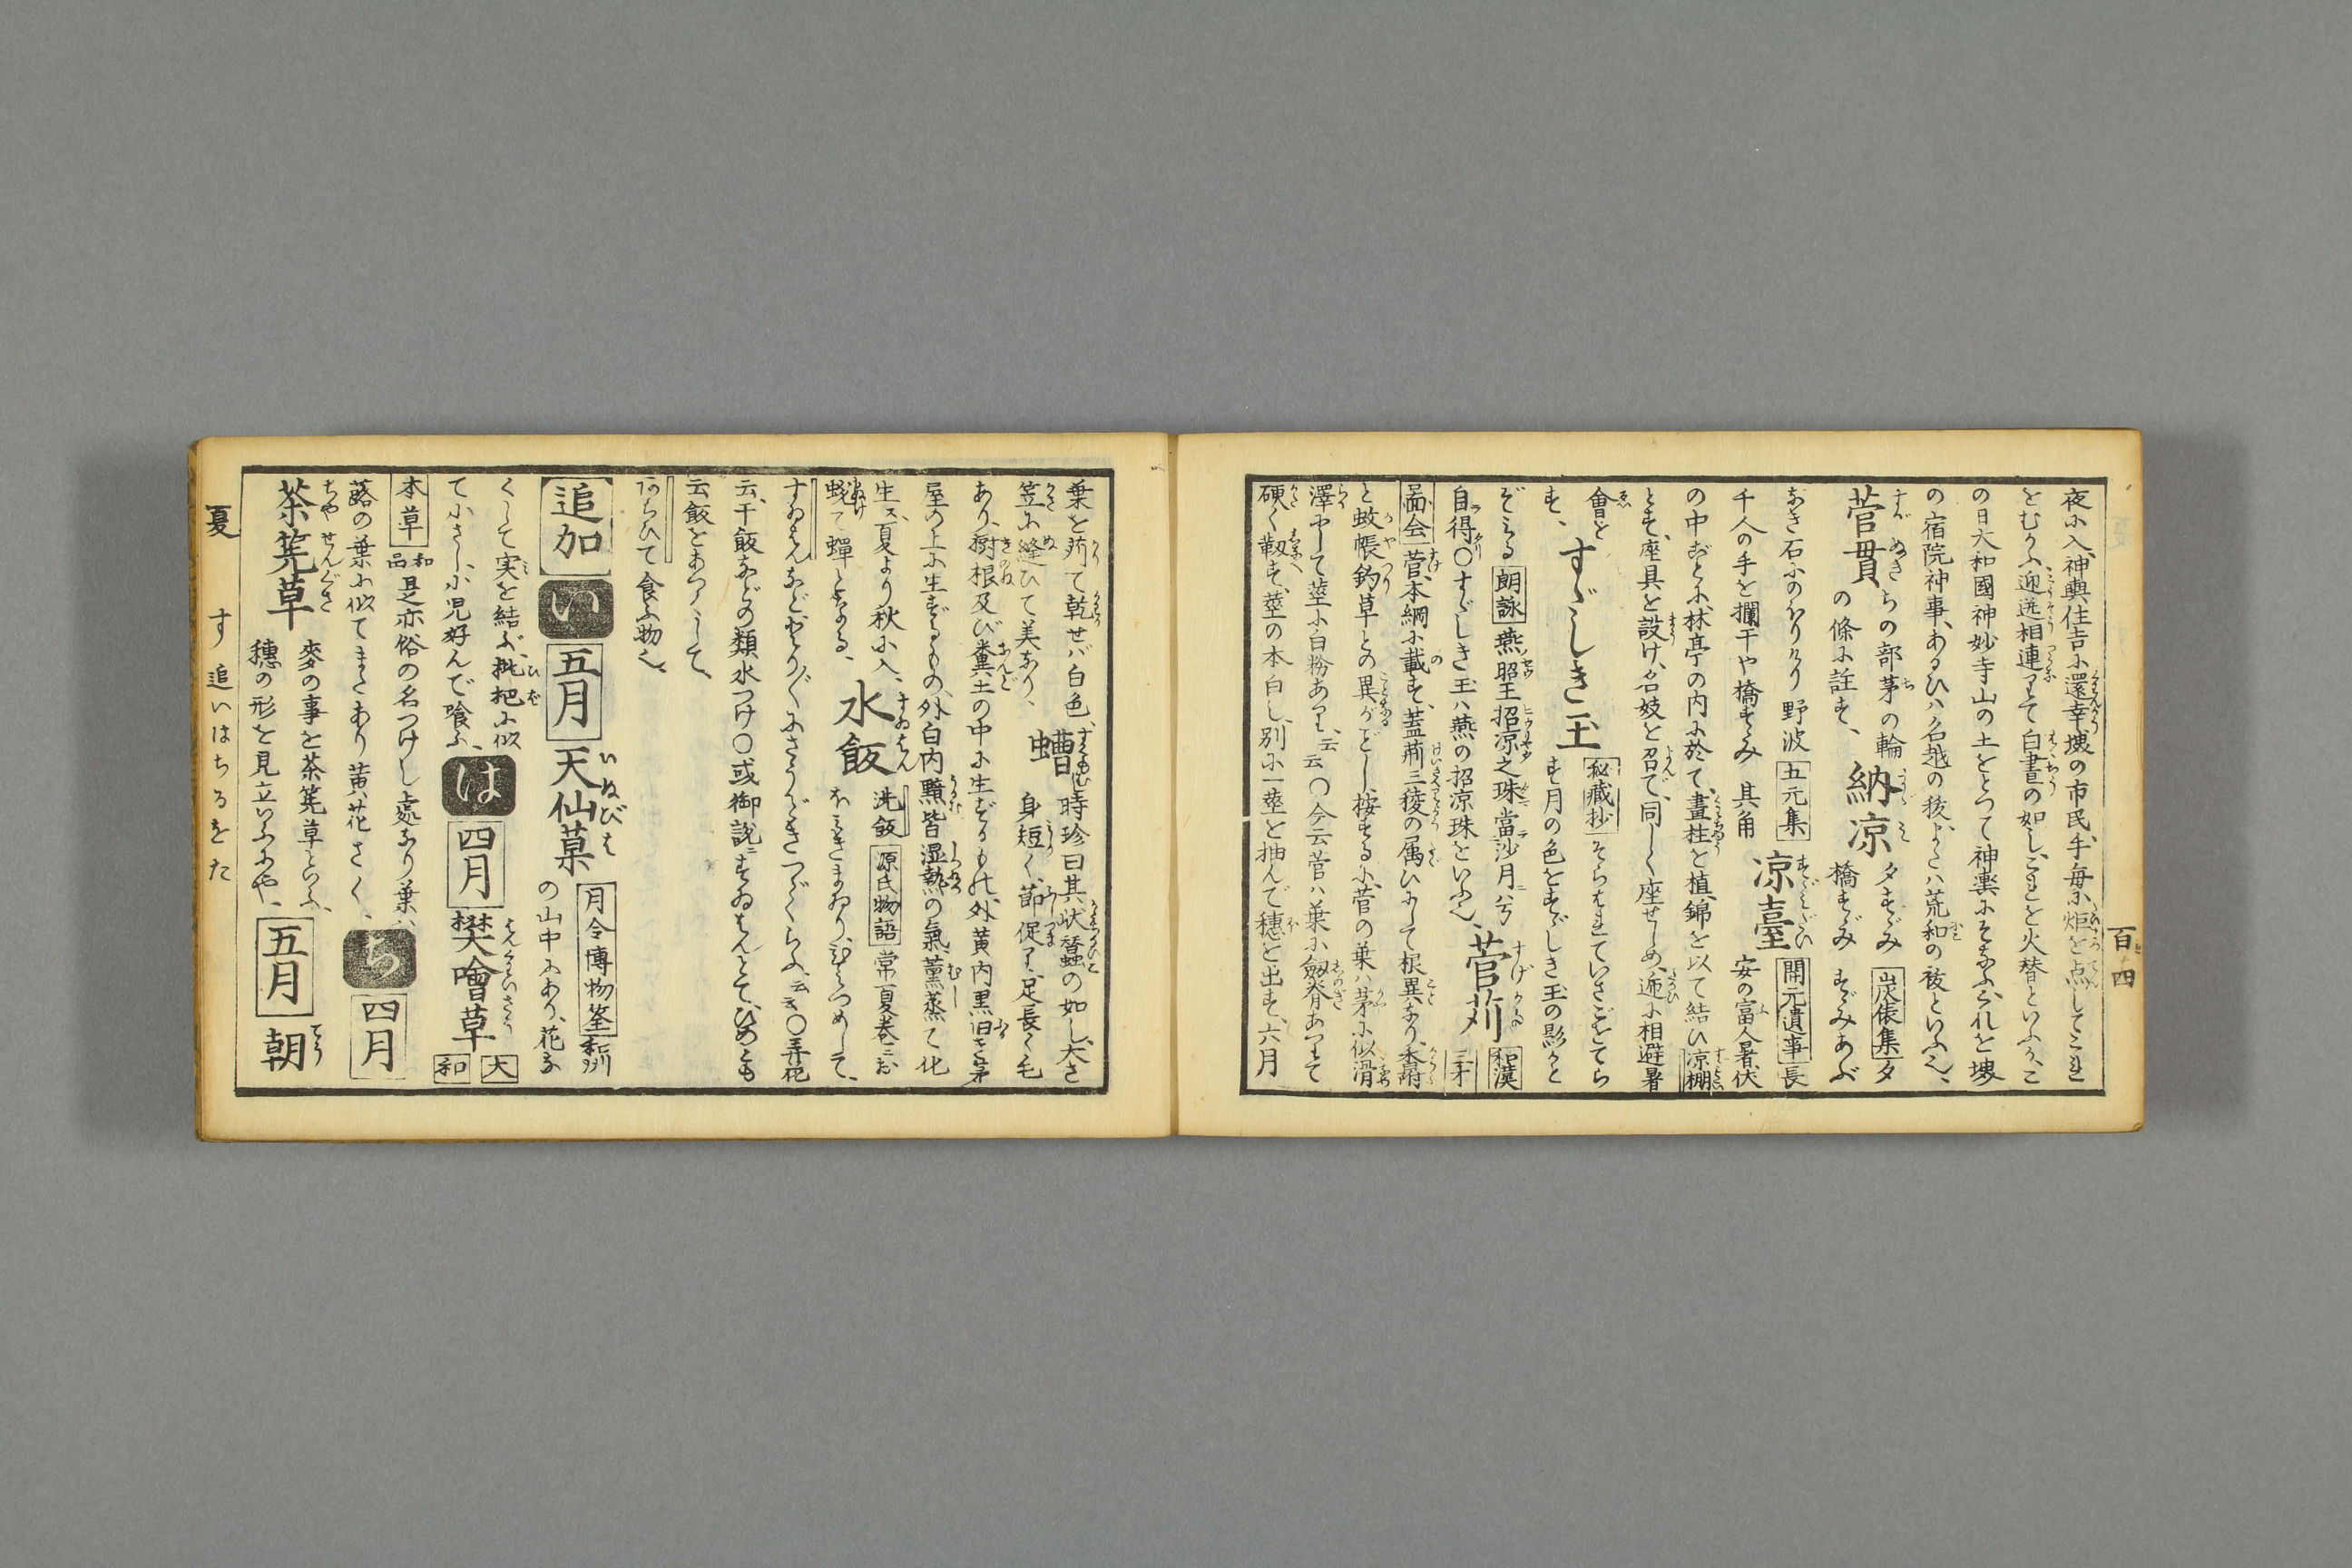 百四
夜ニ入、神輿住吉に還幸、堺の市民、手毎に炬を点してこれ
をむかふ、迎送相連りて白昼の如し、これを火替といふ、こ
の日大和國神妙寺山の土をとつて神輿にそなふ、これを堺
の宿院神事、あるひハ名越の祓、または荒和の祓といふ也、
菅貫 ちの部茅の輪
の條に註す、
納凉 夕すゞみ 炭俵集 夕
橋すゞみ すゞみあぶ
なき石にのぼりけり 野波 五元集
千人の手を欄干や橋すゞみ 其角
凉臺 開元遺事 長
安の富人、暑伏
の中ごとに、林亭の内に於て、畫柱を植、錦を以て結ひ凉棚
とす、座具を設け、名妓を召て、同しく座せしめ、遞に相避暑
會を
す、
すゞしき玉 秘藏抄 そらはれていさごをてら
す月の色をすゞしき玉の影かと
ぞみる 朗詠 燕昭王招凉之珠、當沙月兮
自得、〇すゞしき玉ハ燕の招凉珠をいふ也、
菅苅 和漢
三才
圖会 菅、本綱に載す、蓋荊三稜の属ひにして根異なり、香附
と蚊帳釣草との異がごとし、按ずるに、菅の葉ハ茅に似滑
澤にして莖に白粉あり、云云〇今云菅ハ葉に劔脊あつて
硬く靱す、莖の本白し、別に一莖を抽んで穗を出す、六月
葉を苅て乾せば白色、
笠に縫ひて美なり、
螬 時珍曰其状蠶の如し、大さ
身短く、節促り、足長く毛
あり、樹根及び糞土の中に生ずるもの、外黄内黒、旧き茅
屋の上に生ずるもの、外白内黯、皆湿熱の氣薫蒸して化
生ス、夏より秋に入、
蛻て蟬となる、
水飯 洗飯 源氏物語 常夏巻ニ
ほみきまゐり、ひみづめして、
すゐはんなどとり〴〵にさうどきつゝくらふ、云云〇弄花
云、干飯などの類、水つけ〇或御説ニすゐはんとて、ひめとも
云飯をあつくして、
あらひて食ふ物也、
追加
い
五月 天仙菓 月令博物筌 和州
の山中にあり、花な
くして実を結ぶ、枇杷に似
て小さし、小児好んで喰ふ、
は
四月 樊噲草 大
和
本草 和品 是亦俗の名つけし處なり、葉ハ
蕗の葉に似てまたあり、黄花さく、
ち
四月
茶筅草 麥の事を茶筅草といふ、
穗の形を見立いふにや、
五月 朝
夏 す 追いはちるをた